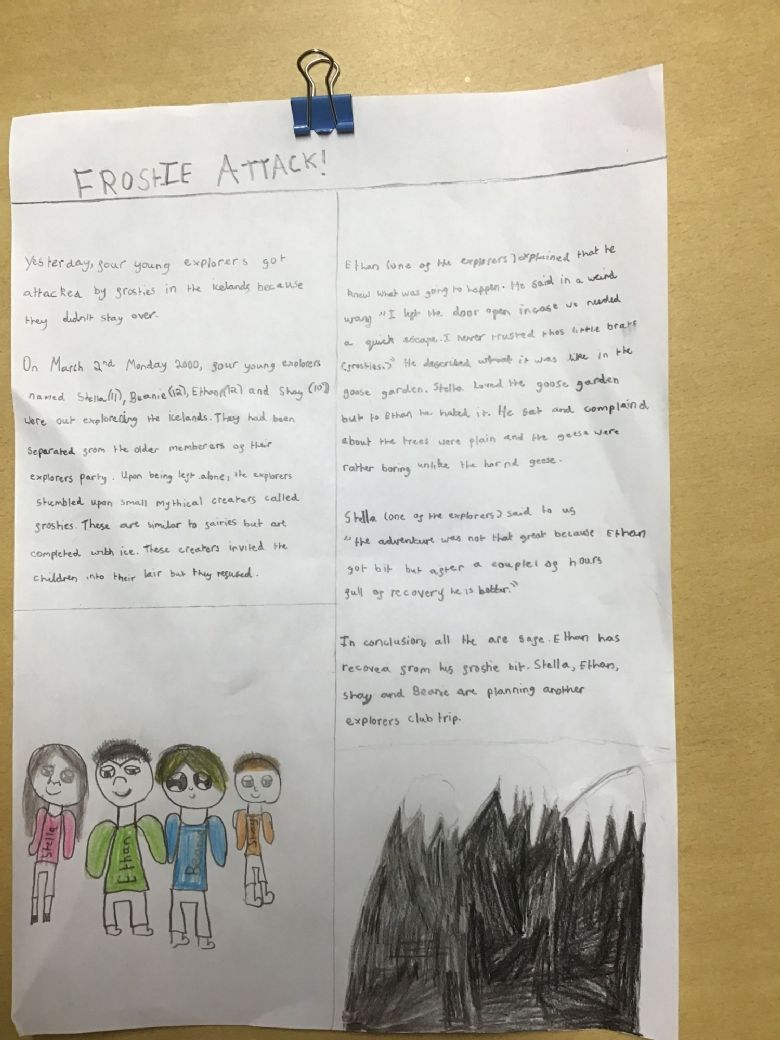 FROSTIE ATTACK!
Yesterday, four young explorers got
attacked by frosties in the Icelands because
they didn't stay over.
On March 2nd Monday 2000, four young explorers
named Stella(11), Beanie(12), Ethan(12) and Shay (10)
were out exploreing the icelands. They had been
separated from the older memberers of their
explorers party. Upon being left alone, the explorers
stumbled upon small mythical creaters called
frosties. These are similar to fairies but are
completed with ice. These creators invited the
children into their lair but they refused.
Ethan (one of the explorers) explained that he
knew what was going to happen. He said in a weird
way "I left the door open incase we needed
a quick escape. I never trusted thos little brats
(frosties)." He described what it was like in the
goose garden. Stella loved the goose garden
but to Ethan he hated it. He sat and complaind
about the trees were plain and the geese were
rather boring unlike the hornd geese.
Stella (one of the explorers) said to us
"the adventure was not that great because Ethan
got bit but after a couplel of hours
full of recovery he is better."
In conclusion, all the are safe. Ethan has
recovea from his frostie bit. Stella, Ethan,
Shay and Beanie are planning another
explorers club trip.
Stella
Ethan
Bean
Shay